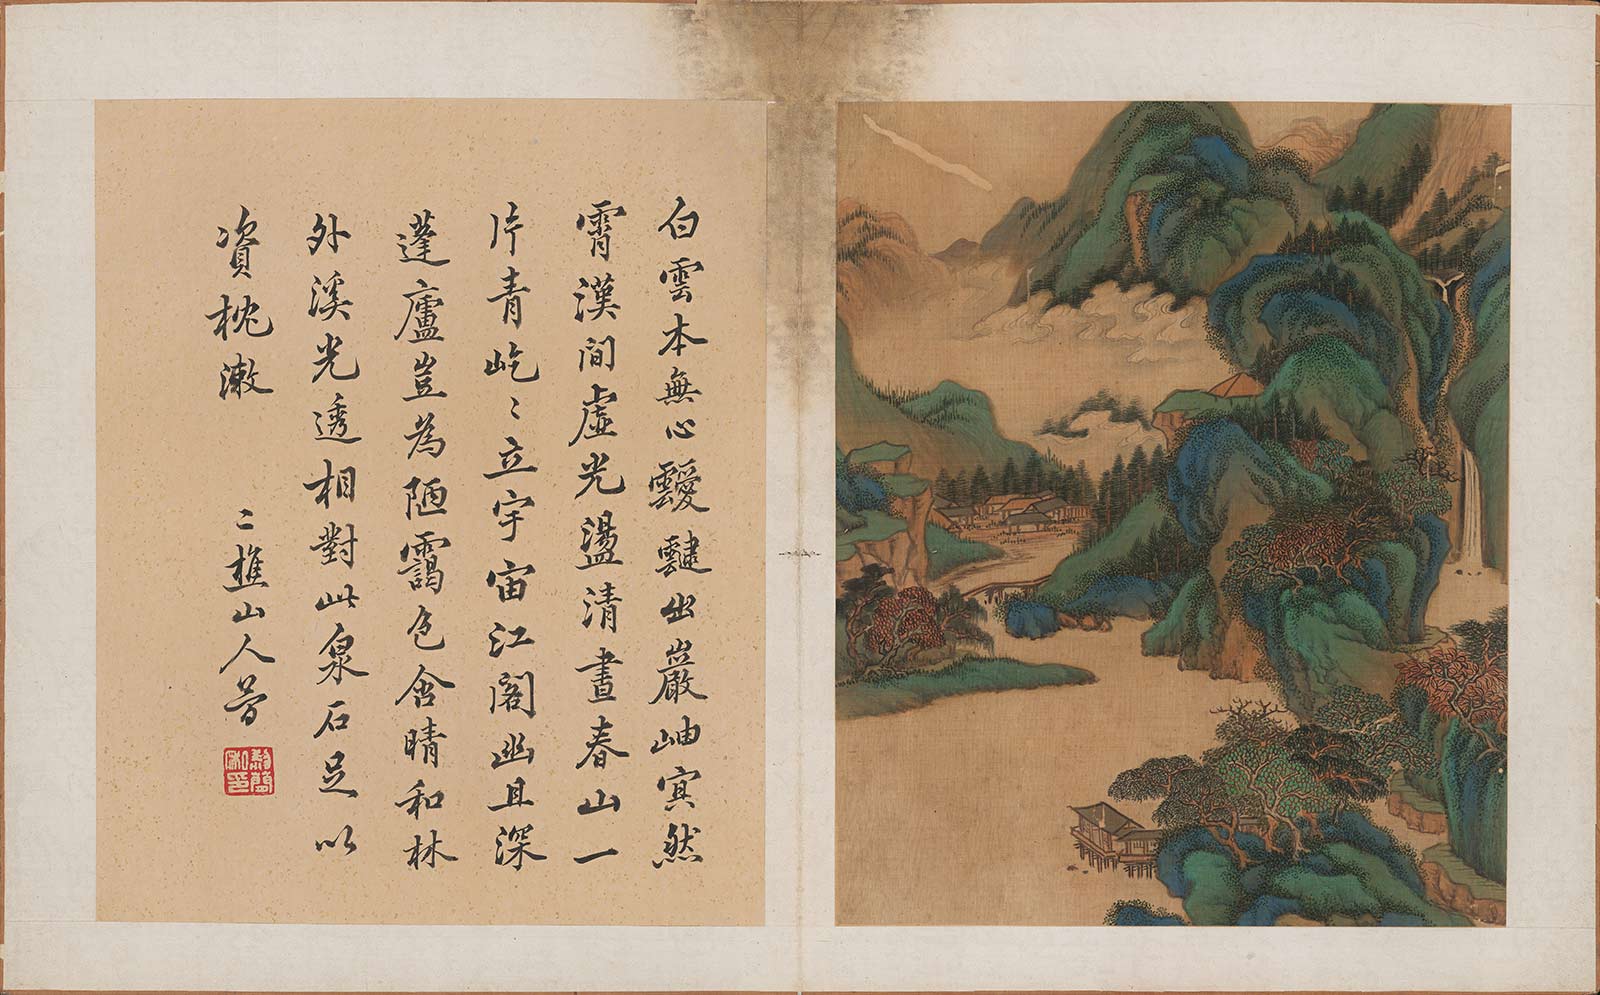 白雲本無心靉靆出巖岫寅然
霄漢間虛光盪清晝春山一
片青屹〻立宇宙江閣幽且深
蓬廬豈為陋靄色含晴和林
外溪光透相對此泉石足以
資枕漱
二樵山人